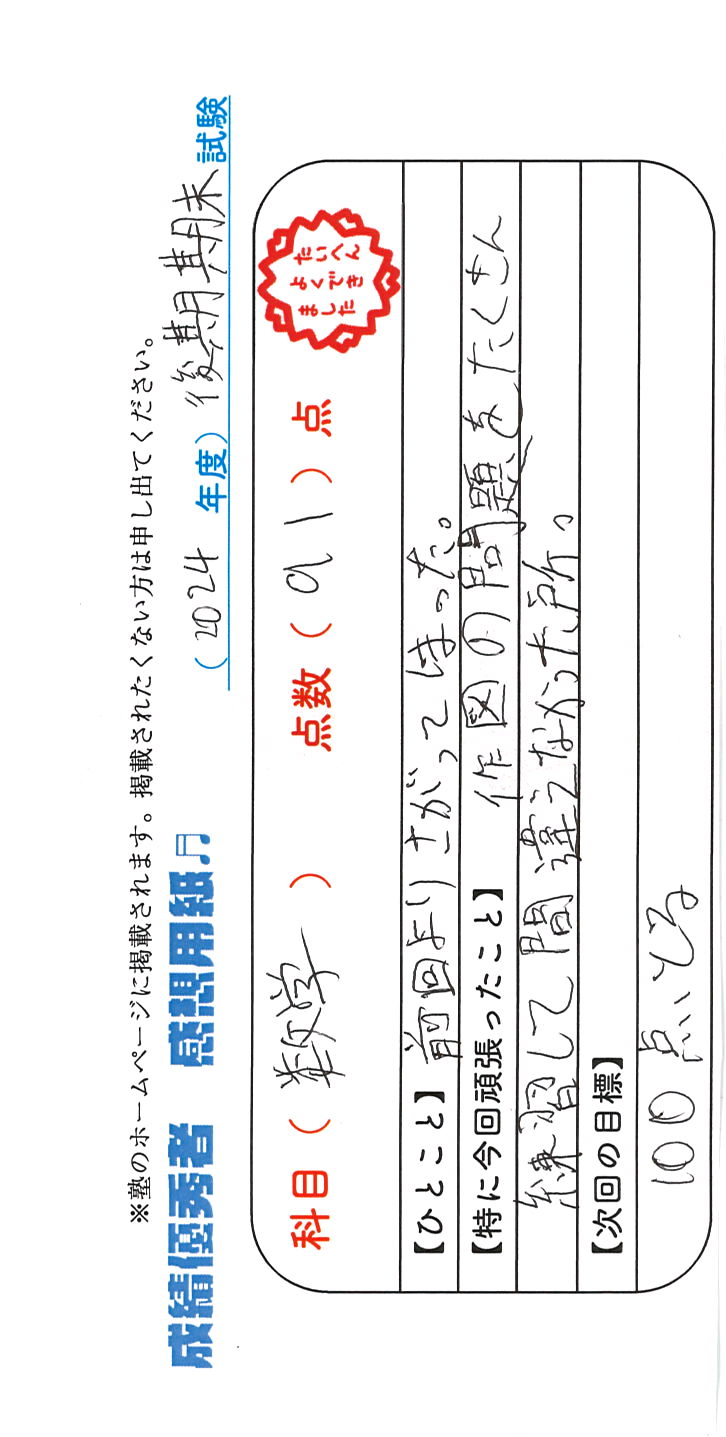 ※塾のホームページに掲載されます。掲載されたくない方は申し出てください。
成績優秀者 感想用紙♬ (2024 年度) 後期期末 試験
科目 ( 数学 ) 点数 ( 91 ) 点
たいへん
よくでき
ました
【ひとこと】 前回よりさがってしまった。
【特に今回頑張ったこと】 作図の問題をたくさん
練習して間違えなかった所。
【次回の目標】
100点とる